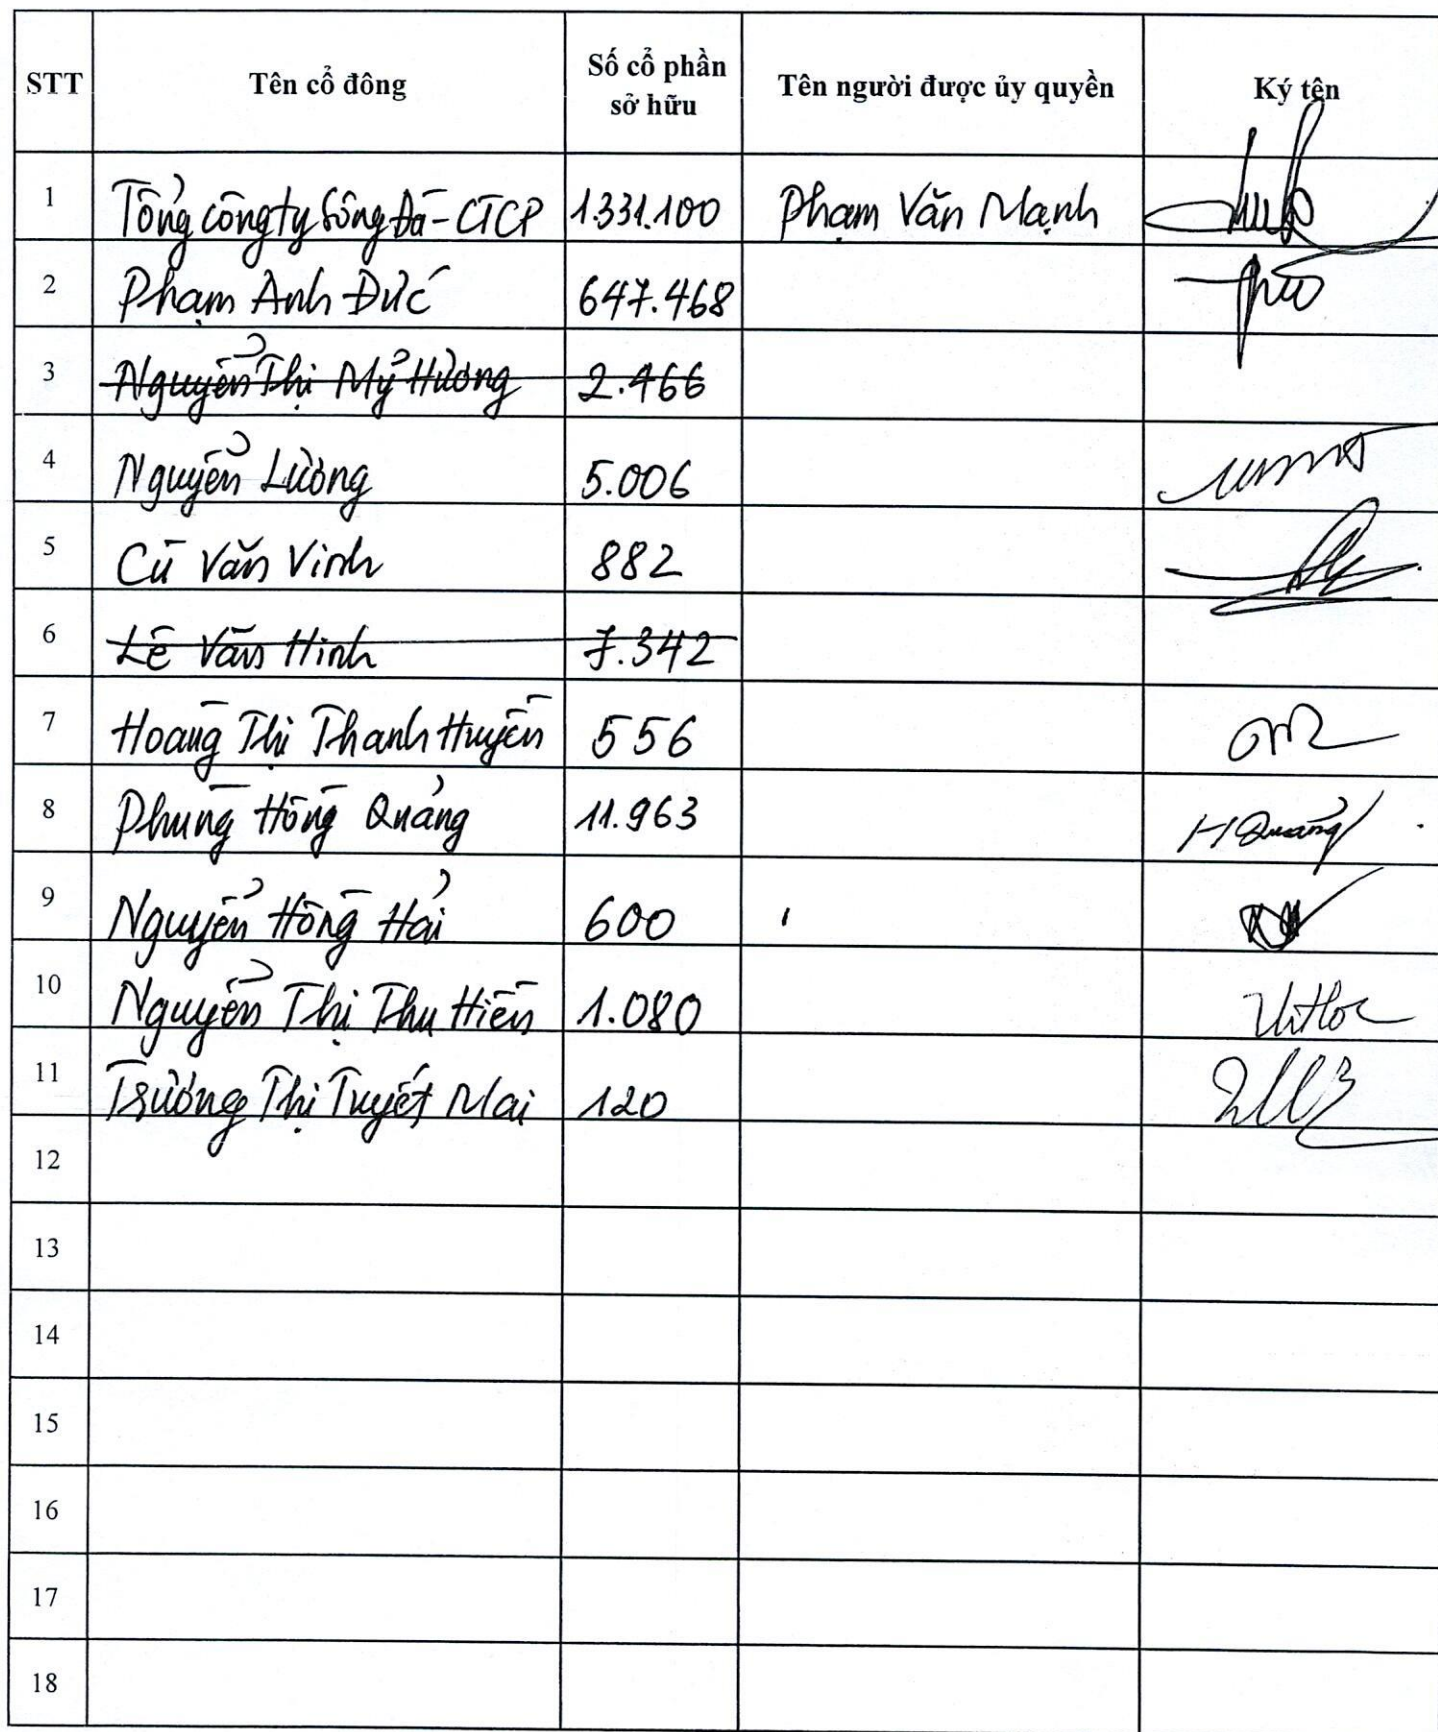 STT Tên cổ đông Số cổ phần sở hữu Tên người được ủy quyền Ký tên
1 Tổng công ty Sông Đà - CTCP 1.331.100 Phạm Văn Mạnh
2 Phạm Anh Đức 647.468
3 Nguyễn Thị Mỹ Hương 2.466
4 Nguyễn Lương 5.006
5 Cù Văn Vinh 882
6 Lê Văn Hinh 7.342
7 Hoàng Thị Thanh Huyền 556
8 Phùng Hồng Quảng 11.963 HQuảng
9 Nguyễn Hồng Hải 600
10 Nguyễn Thị Thu Hiền 1.080
11 Trương Thị Tuyết Mai 120
12
13
14
15
16
17
18